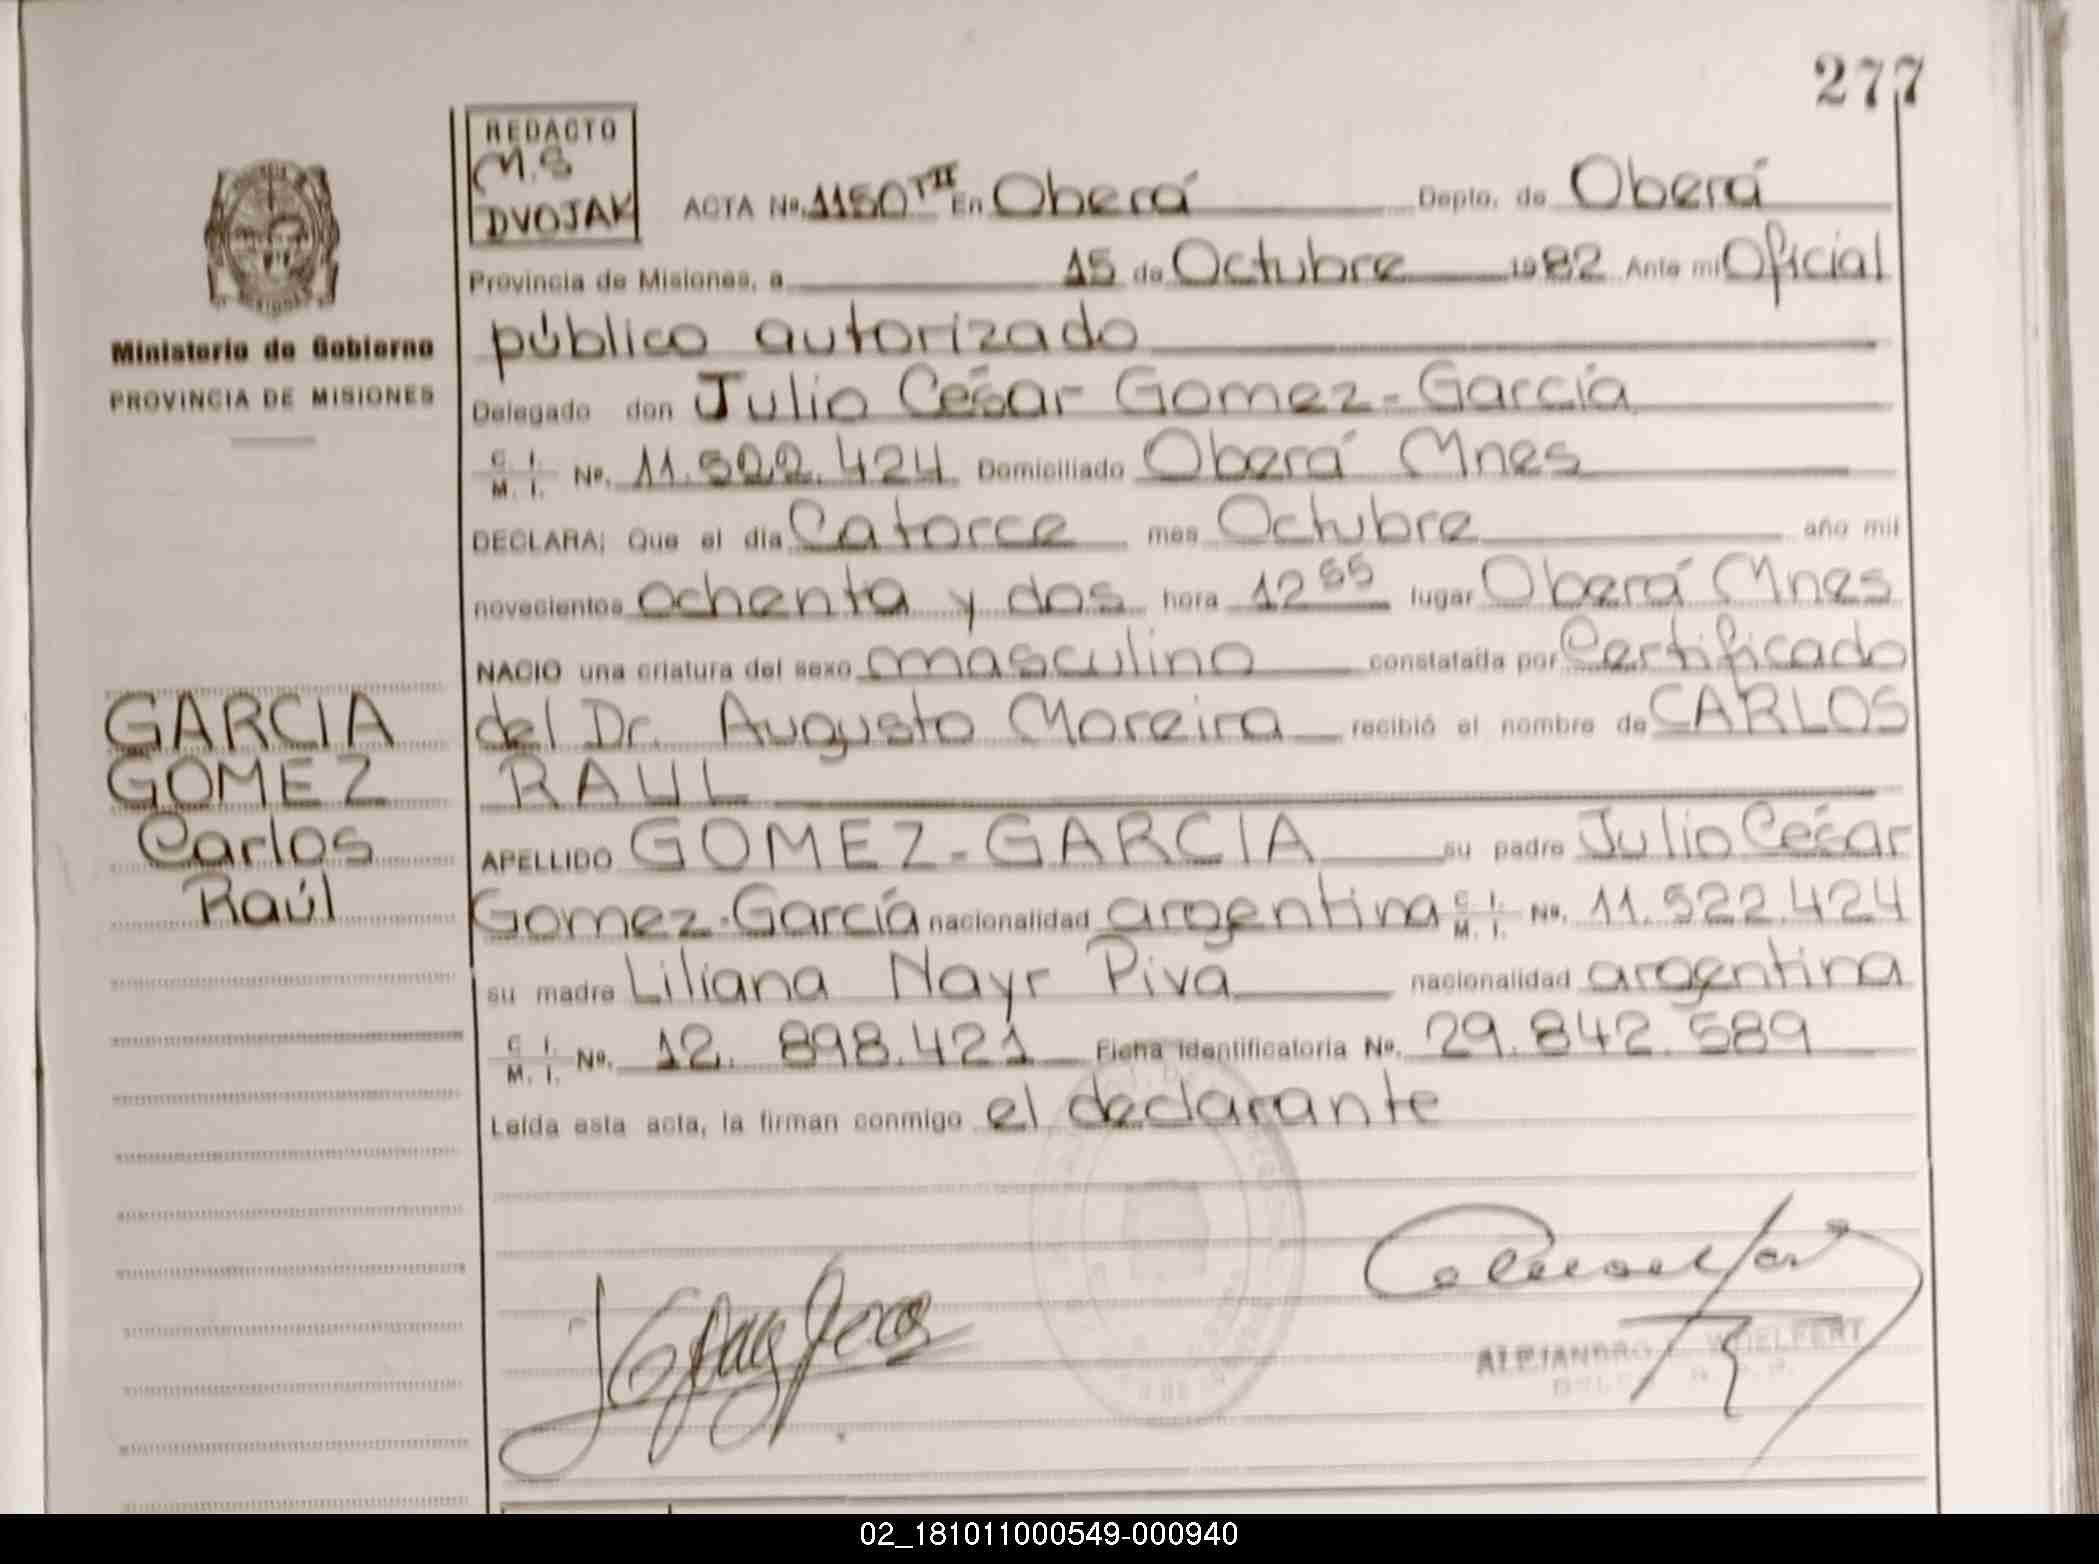 277
REDACTO
M.S
DVOJAK
ACTA Nº. 1150 TII En Oberá Depto. de Oberá
Provincia de Misiones, a 15 de Octubre 1982 Ante mi Oficial
público autorizado
Delegado don Julio César Gomez-García
C. I. M. I. Nº. 11.522.424 Domiciliado Oberá Mnes
DECLARA; Que el día Catorce mes Octubre año mil
novecientos ochenta y dos hora 12 55 lugar Oberá Mnes
NACIO una criatura del sexo masculino constatada por Certificado
del Dr. Augusto Moreira recibió el nombre de CARLOS
RAUL
APELLIDO GOMEZ-GARCIA su padre Julio César
Gomez-García nacionalidad argentina C. I. M. I. Nº. 11.522.424
su madre Liliana Nayr Piva nacionalidad argentina
C. I. M. I. Nº. 12.898.421 Ficha Identificatoria Nº. 29.842.589
Leída esta acta, la firman conmigo el declarante
ALEJANDRO WOELFERT
Ministerio de Gobierno
PROVINCIA DE MISIONES
GARCIA
GOMEZ
Carlos
Raúl
02_181011000549-000940